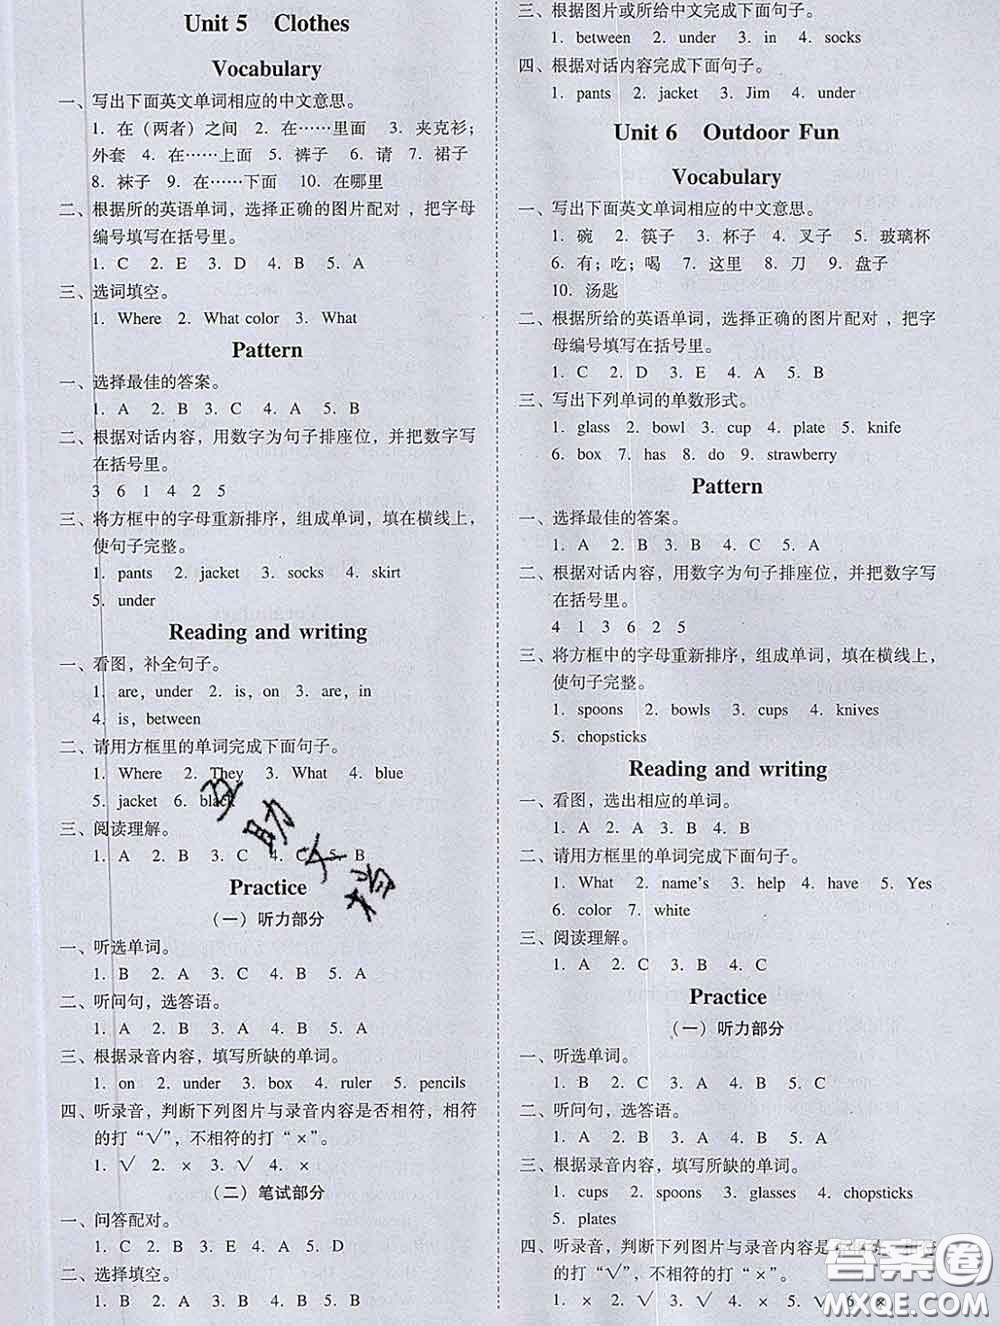 Unit 5 Clothes
Vocabulary
一、写出下面英文单词相应的中文意思。
1. 在（两者）之间 2. 在……里面 3. 夹克衫；
外套 4. 在……上面 5. 裤子 6. 请 7. 裙子
8. 袜子 9. 在……下面 10. 在哪里
二、根据所的英语单词，选择正确的图片配对 ，把字母
编号填写在括号里。
1. C 2. E 3. D 4. B 5. A
三、选词填空。
1. Where 2. What color 3. What
Pattern
一、选择最佳的答案。
1. A 2. B 3. C 4. A 5. B
二、根据对话内容，用数字为句子排座位，并把数字写
在括号里。
3 6 1 4 2 5
三、将方框中的字母重新排序，组成单词，填在横线上，
使句子完整。
1. pants 2. jacket 3. socks 4. skirt
5. under
Reading and writing
一、看图，补全句子。
1. are, under 2. is, on 3. are, in
4. is, between
二、请用方框里的单词完成下面句子。
1. Where 2. They 3. What 4. blue
5. jacket 6. black
三、阅读理解。
1. A 2. B 3. C 4. C 5. B
Practice
（一）听力部分
一、听选单词。
1. B 2. A 3. C 4. B 5. A
二、听问句，选答语。
1. A 2. B 3. A 4. B 5. A
三、根据录音内容，填写所缺的单词。
1. on 2. under 3. box 4. ruler 5. pencils
四、听录音，判断下列图片与录音内容是否相符，相符
的打“√”，不相符的打“×”。
1. √ 2. × 3. √ 4. ×
（二）笔试部分
一、问答配对。
1. C 2. B 3. E 4. A 5. D
二、选择填空。
1. B 2. A 3. A 4. B 5. B
三、根据图片或所给中文完成下面句子。
1. between 2. under 3. in 4. socks
四、根据对话内容完成下面句子。
1. pants 2. jacket 3. Jim 4. under
Unit 6 Outdoor Fun
Vocabulary
一、写出下面英文单词相应的中文意思。
1. 碗 2. 筷子 3. 杯子 4. 叉子 5. 玻璃杯
6. 有；吃；喝 7. 这里 8. 刀 9. 盘子
10. 汤匙
二、根据所给的英语单词，选择正确的图片配对 ，把字
母编号填写在括号里。
1. C 2. D 3. E 4. A 5. B
三、写出下列单词的单数形式。
1. glass 2. bowl 3. cup 4. plate 5. knife
6. box 7. has 8. do 9. strawberry
Pattern
一、选择最佳的答案。
1. A 2. B 3. B 4. C 5. A
二、根据对话内容，用数字为句子排座位，并把数字写
在括号里。
4 1 3 6 2 5
三、将方框中的字母重新排序，组成单词，填在横线上，
使句子完整。
1. spoons 2. bowls 3. cups 4. knives
5. chopsticks
Reading and writing
一、看图，选出相应的单词。
1. A 2. A 3. B 4. B
二、请用方框里的单词完成下面句子。
1. What 2. name's 3. help 4. have 5. Yes
6. color 7. white
三、阅读理解。
1. A 2. C 3. B 4. C
Practice
（一）听力部分
一、听选单词。
1. B 2. C 3. A 4. C 5. B
二、听问句，选答语。
1. A 2. B 3. B 4. A 5. A
三、根据录音内容，填写所缺的单词。
1. cups 2. spoons 3. glasses 4. chopsticks
5. plates
四、听录音，判断下列图片与录音内容是
的打“√”，不相符的打“×”。
1. × 2. √ 3. √ 4. × 5. √ 6. ×
互助文档
答案圈
MXQE.COM